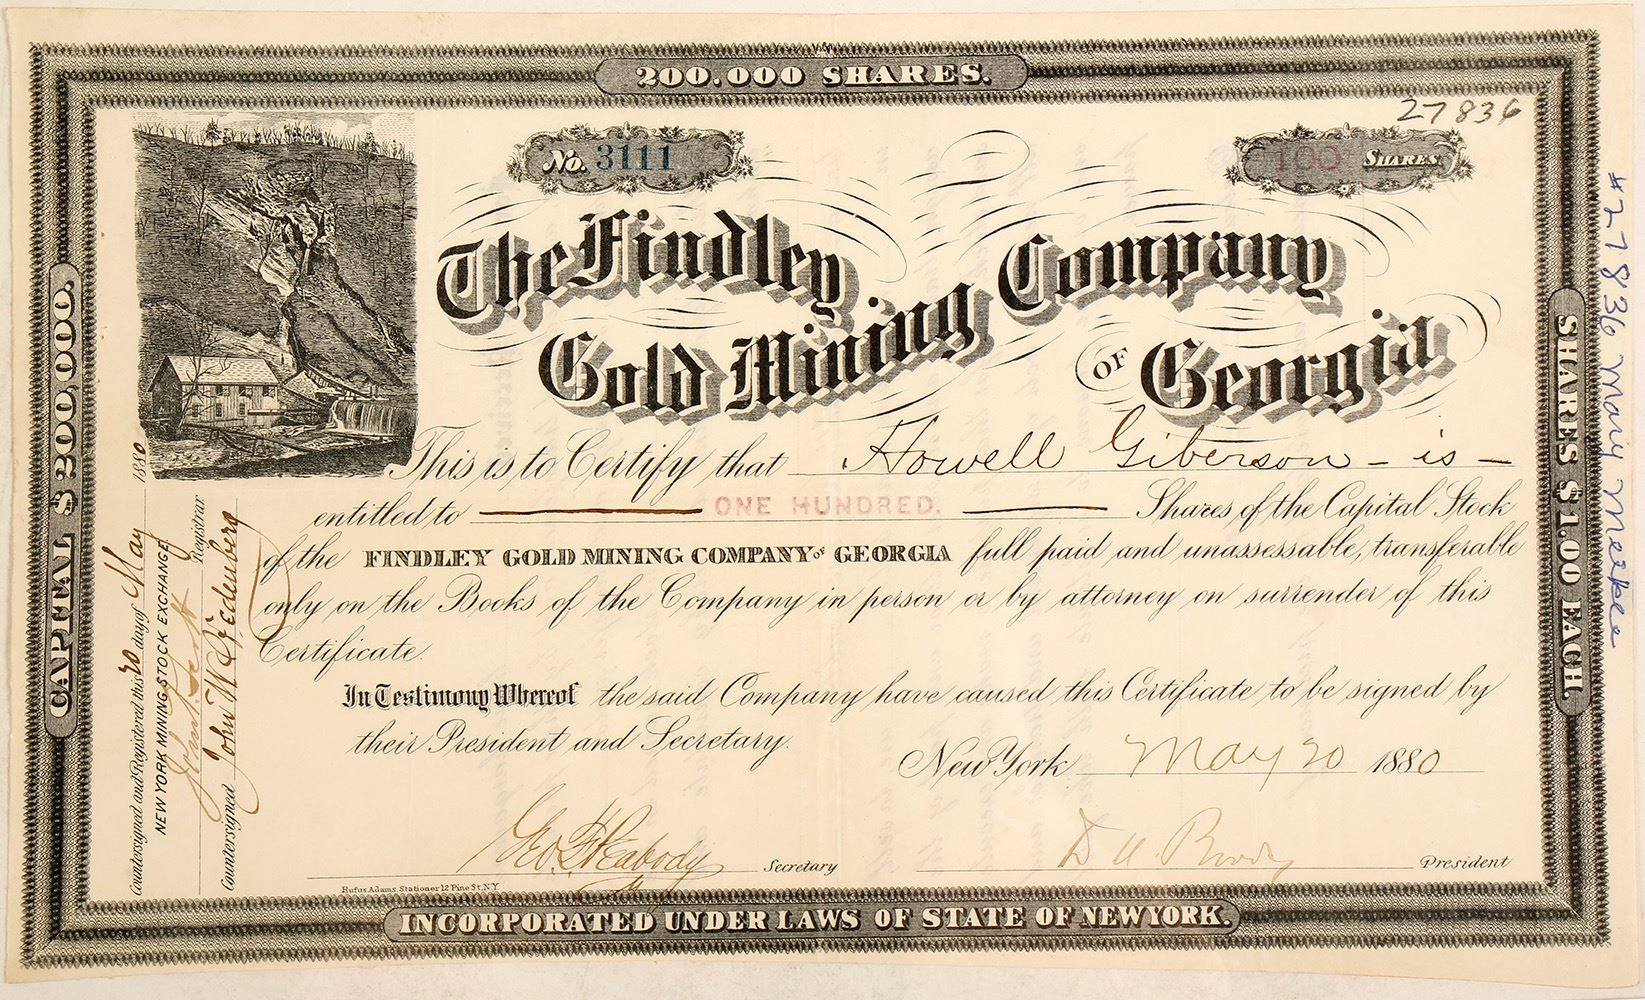 200.000 SHARES.
27836
No. 3111
100 SHARES.
The Findley
Gold Mining
Company
OF Georgia
This is to Certify that Howell Giberson - is -
entitled to ONE HUNDRED. Shares of the Capital Stock
of the FINDLEY GOLD MINING COMPANY of GEORGIA full paid and unassessable, transferable
only on the Books of the Company in person or by attorney on surrender of this
Certificate.
In Testimony Whereof the said Company have caused this Certificate to be signed by
their President and Secretary.
New York May 20 1880
Geo. F. Peabody Secretary
President
Rufus Adams, Stationer 12 Pine St. N.Y.
INCORPORATED UNDER LAWS OF STATE OF NEW YORK.
CAPITAL $200,000.
SHARES $1.00 EACH.
Countersigned and Registered this 20 day of May 1880
NEW YORK MINING STOCK EXCHANGE
Registrar
Countersigned John W.
#27836 Mary